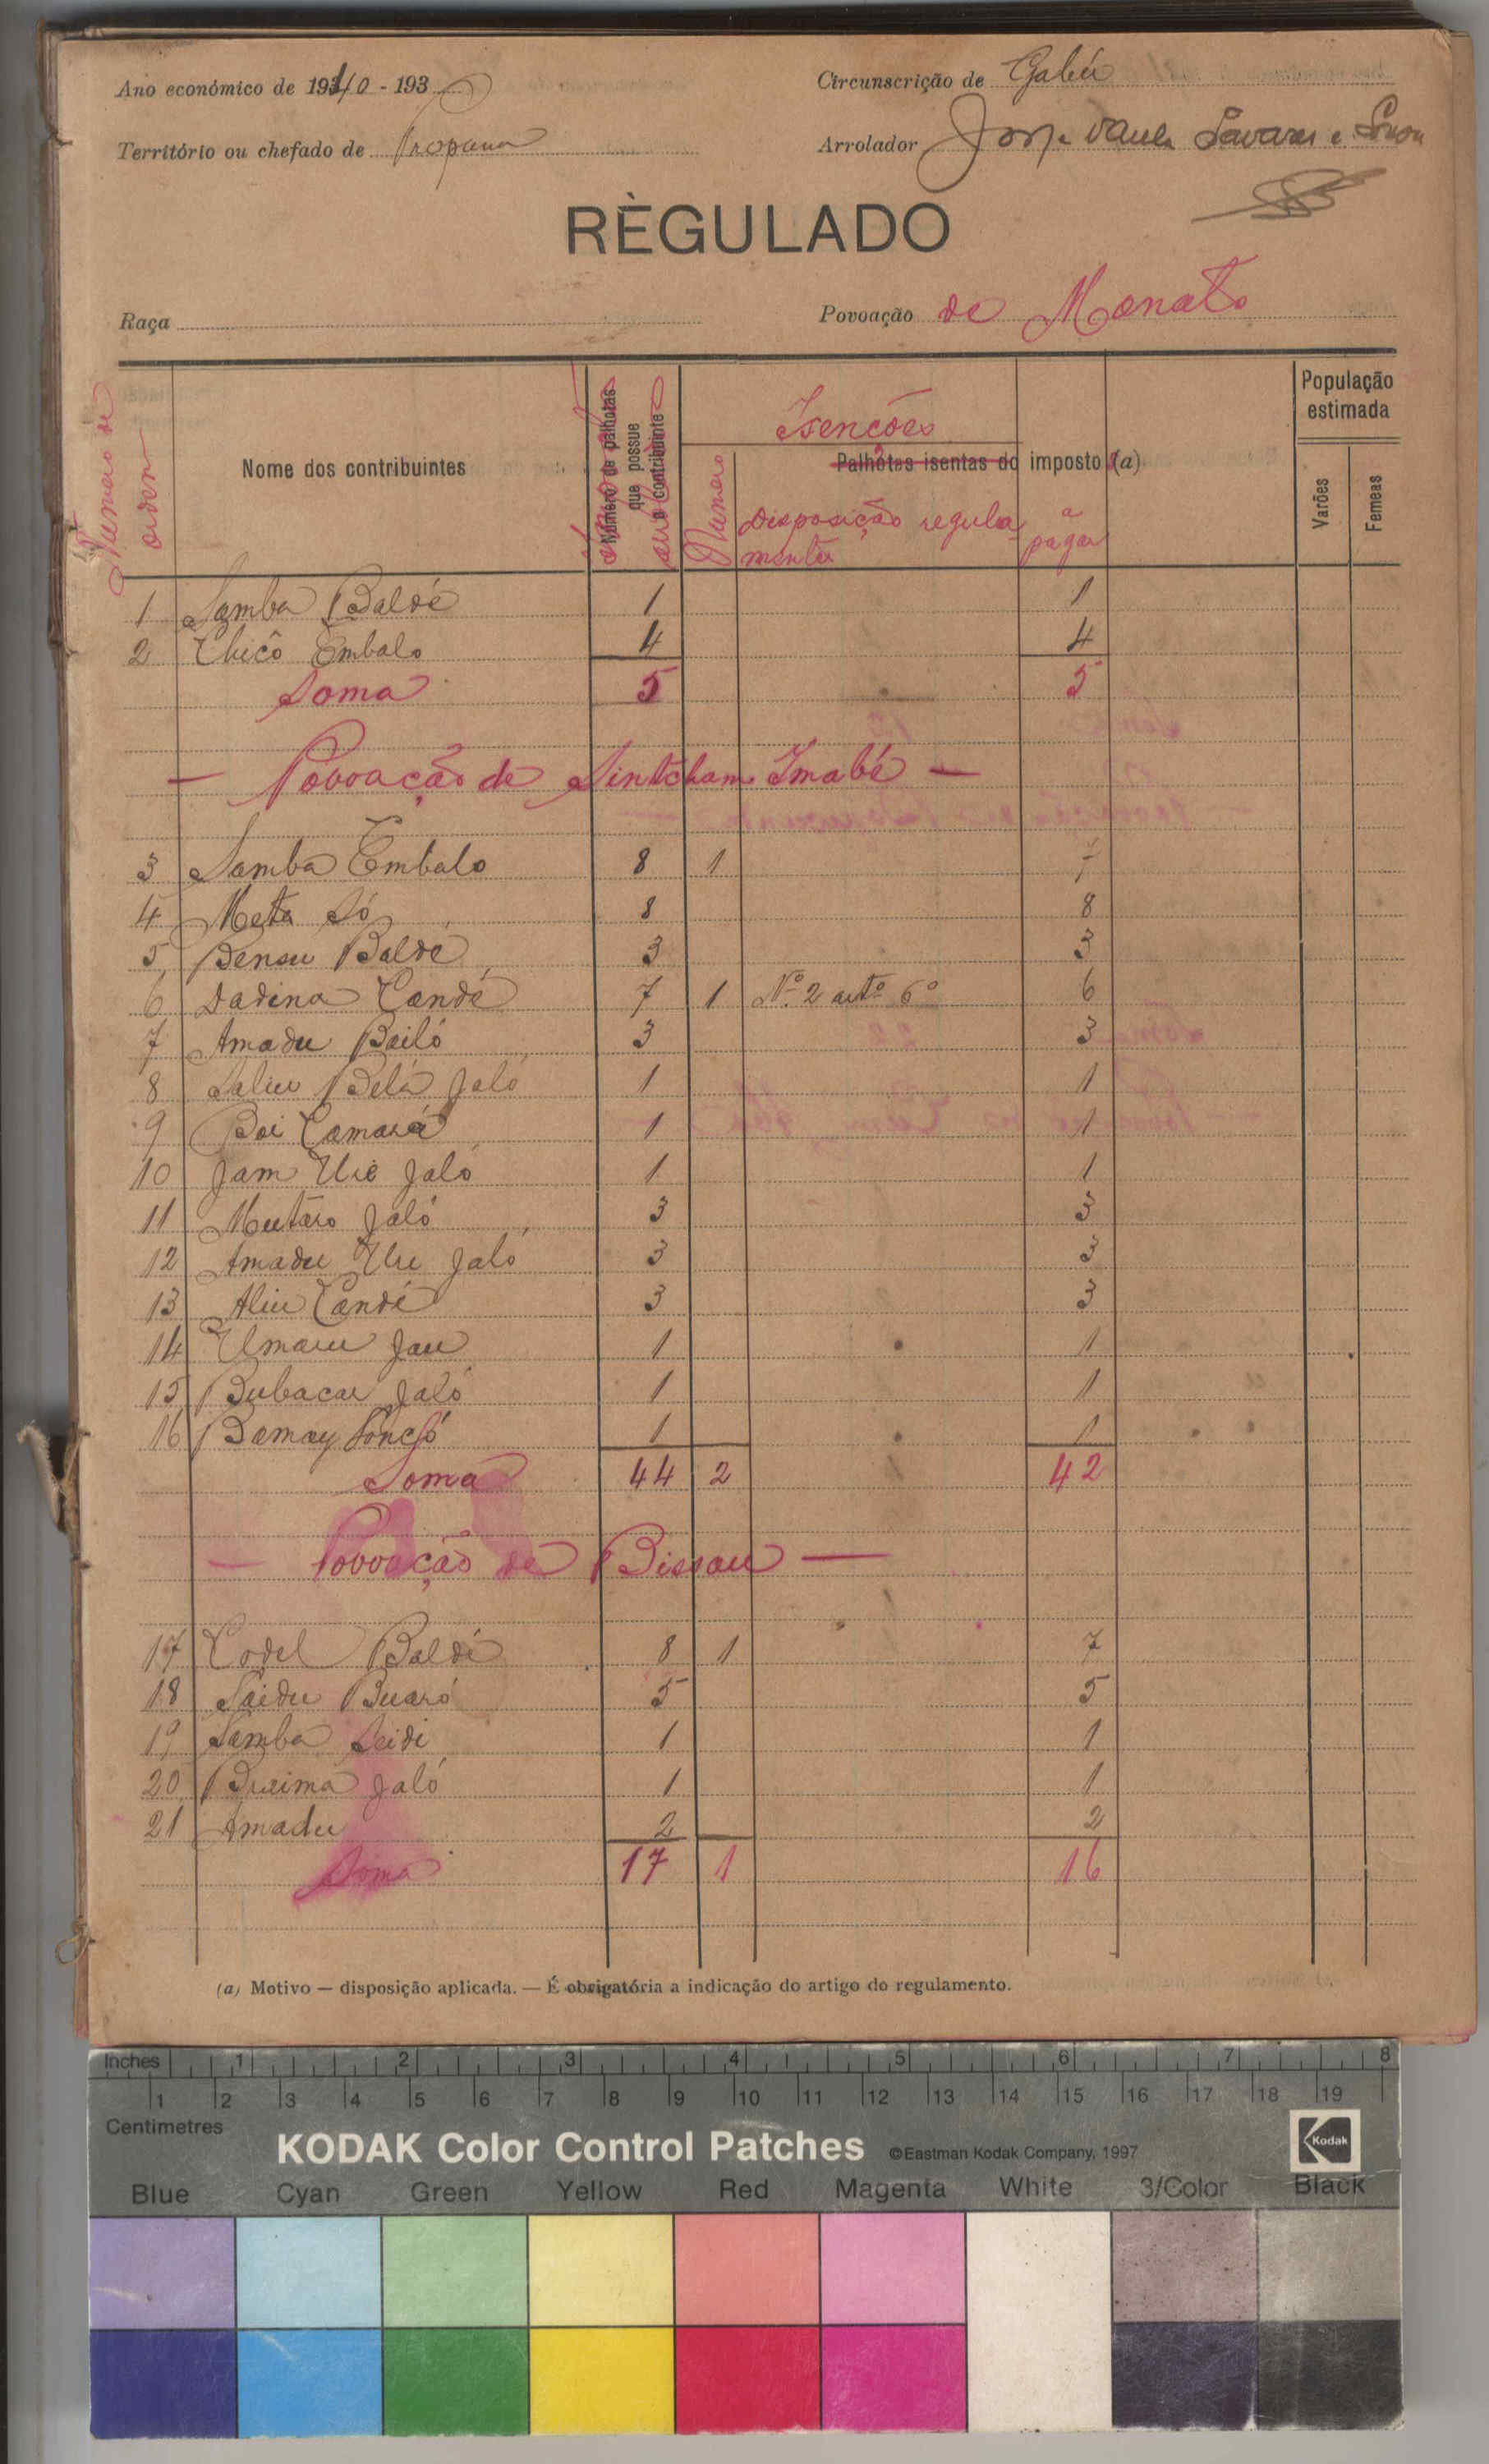 Ano económico de 1940 - 193
Circunscrição de Gabú
Território ou chefado de Propana
Arrolador José Tavares e
RÈGULADO
Raça
Povoação de Monato
Numero de ordem
Nome dos contribuintes
Número de palhotas que possue o contribuinte
Isenções
Palhotas isentas do imposto (a)
Numero
Disposição regula-
mentar
a pagar
População estimada
Varões
Femeas
1 Samba Baldé 1 1
2 Chicô Embalo 4 4
Soma 5 5
— Povoação de Sintcham Imabé —
3 Samba Embalo 8 1 7
4 Meta Só 8 8
5 Bensu Baldé 3 3
6 Dadina Candé 7 1 Nº 2 artº 6º 6
7 Amadu Bailó 3 3
8 Saliu Belá Jaló 1 1
9 Boi Camará 1 1
10 Jam Urè Jaló 1 1
11 Mutaro Jaló 3 3
12 Amadu Uri Jaló 3 3
13 Aliu Candé 3 3
14 Umaru Jau 1 1
15 Bubacar Jaló 1 1
16 Bamay Soncó 1 1
Soma 44 2 42
— Povoação de Bissau —
17 Codel Baldé 8 1 7
18 Saidu Buaró 5 5
19 Samba Seidi 1 1
20 Braima Jaló 1 1
21 Amadu 2 2
Soma 17 1 16
(a) Motivo — disposição aplicada. — É obrigatória a indicação do artigo do regulamento.
Inches 1 2 3 4 5 6 7 8
1 2 3 4 5 6 7 8 9 10 11 12 13 14 15 16 17 18 19
Centimetres
KODAK Color Control Patches ©Eastman Kodak Company, 1997 Kodak
Blue Cyan Green Yellow Red Magenta White 3/Color Black